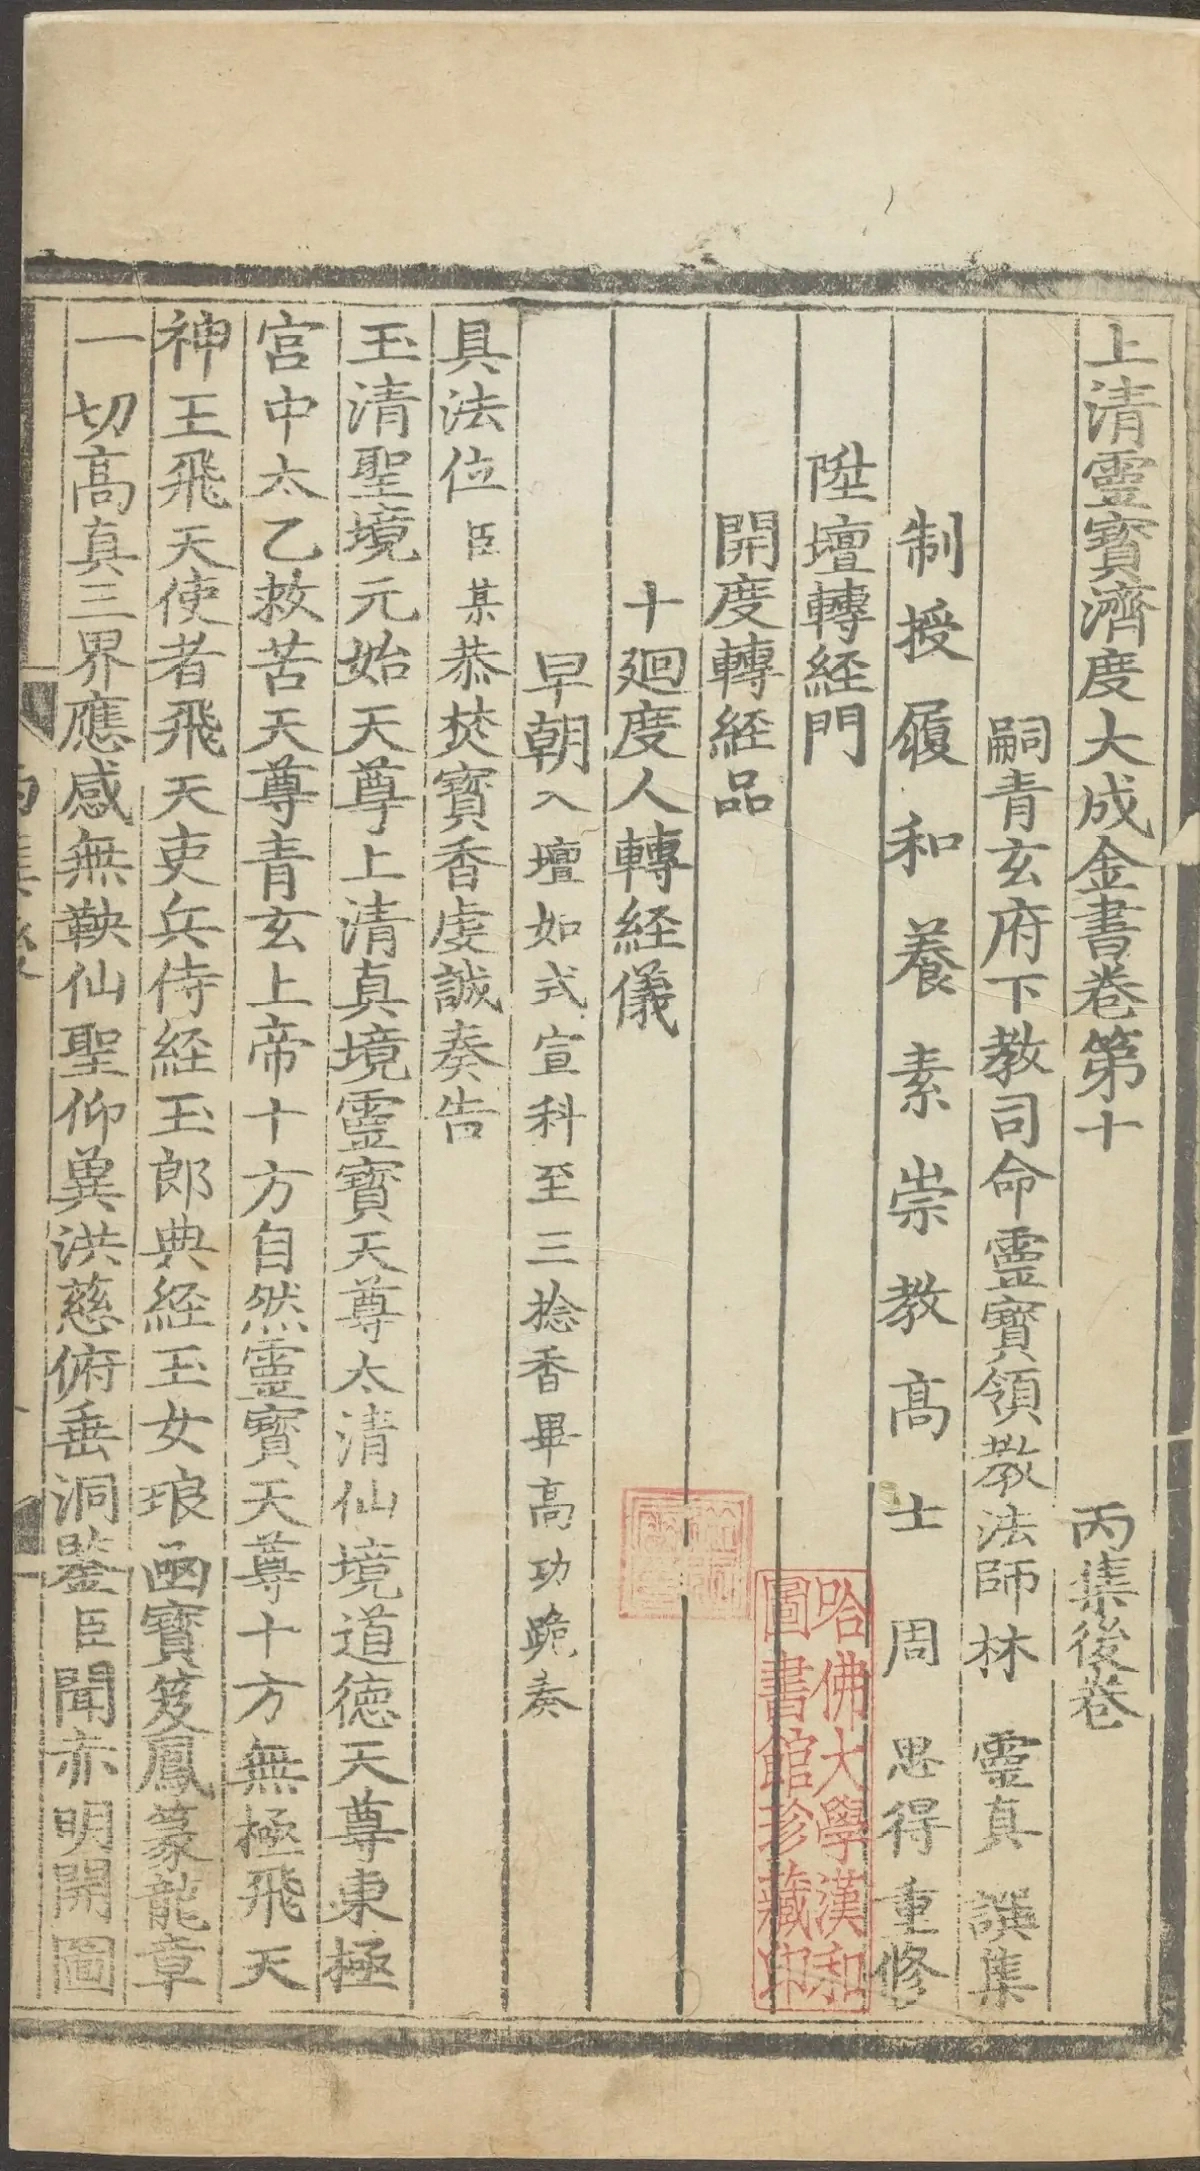 上清靈寶濟度大成金書卷第十 丙集後卷
嗣青玄府下教司命靈寶領教法師林 靈真 譔集
制授履和養素崇教高士 周 思得重修
陞壇轉経門
開度轉経品
十廻度人轉経儀
早朝入壇如式宣科至三捻香畢高功跪奏
具法位臣某恭焚寳香虔誠奏告
玉清聖境元始天尊上清真境靈寳天尊太清仙境道德天尊東極
宮中太乙救苦天尊青玄上帝十方自然靈寳天尊十方無極飛天
神王飛天使者飛天吏兵侍経玉郎典経玉女琅函寳笈鳳篆龍章
一切高真三界應感無鞅仙聖仰兾洪慈俯垂洞鑒臣聞赤明開圖
哈佛大學漢和
圖書館珍藏印